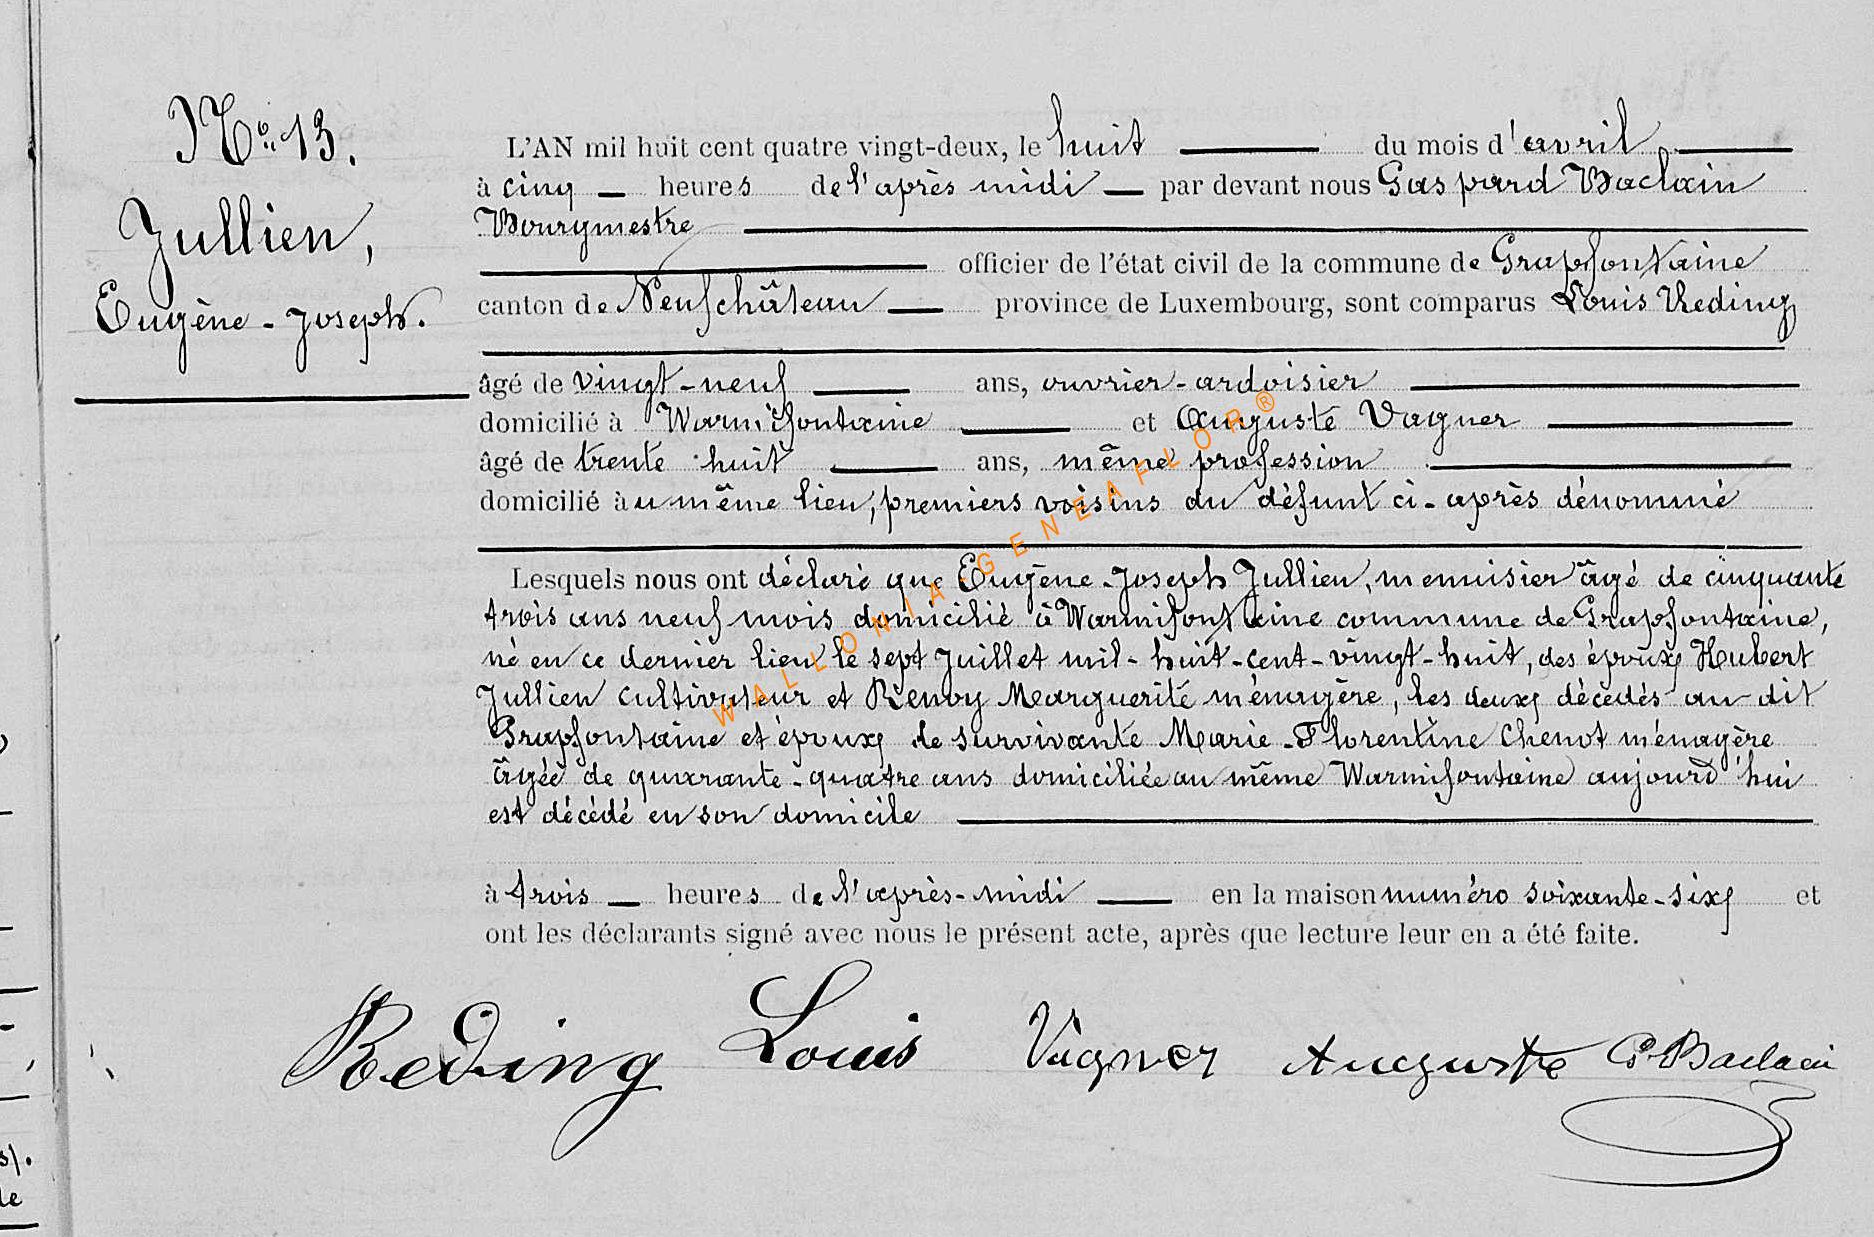 No. 13.
Jullien,
Eugène-Joseph.
L'AN mil huit cent quatre vingt-deux, le huit du mois d'avril
à cinq heures de l'après midi par devant nous Gaspard Baclain
Bourgmestre
officier de l'état civil de la commune de Grapfontaine
canton de Neufchâteau province de Luxembourg, sont comparus Louis Reding
âgé de vingt-neuf ans, ouvrier-ardoisier
domicilié à Warmifontaine et Auguste Vagner
âgé de trente huit ans, même profession
domicilié au même lieu, premiers voisins du défunt ci-après dénommé
Lesquels nous ont déclaré que Eugène-Joseph Jullien, menuisier âgé de cinquante
trois ans neuf mois domicilié à Warmifontaine commune de Grapfontaine,
né en ce dernier lieu le sept Juillet mil-huit-cent-vingt-huit, des époux Hubert
Jullien cultivateur et Renoy Marguerite ménagère, les deux décédés au dit
Grapfontaine et époux de survivante Marie-Florentine Chenot ménagère
âgée de quarante-quatre ans domiciliée au même Warmifontaine aujourd'hui
est décédé en son domicile
à trois heures de l'après-midi en la maison numéro soixante-six et
ont les déclarants signé avec nous le présent acte, après que lecture leur en a été faite.
Reding Louis Vagner Auguste G. Baclain
WALLONIA GENEAFLOR®
s/.
le